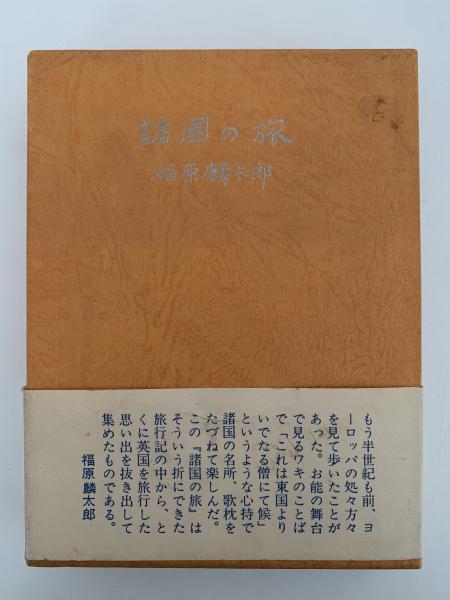 諸國の旅
福原麟太郎
もう半世紀も前、ヨ
ーロッパの処々方々
を見て歩いたことが
あった。お能の舞台
で見るワキのことば
で「これは東国より
いでたる僧にて候」
というような心持で
諸国の名所、歌枕を
たづねて楽しんだ。
この『諸国の旅』は
そういう折にできた
旅行記の中から、と
くに英国を旅行した
思い出を抜き出して
集めたものである。
福原麟太郎